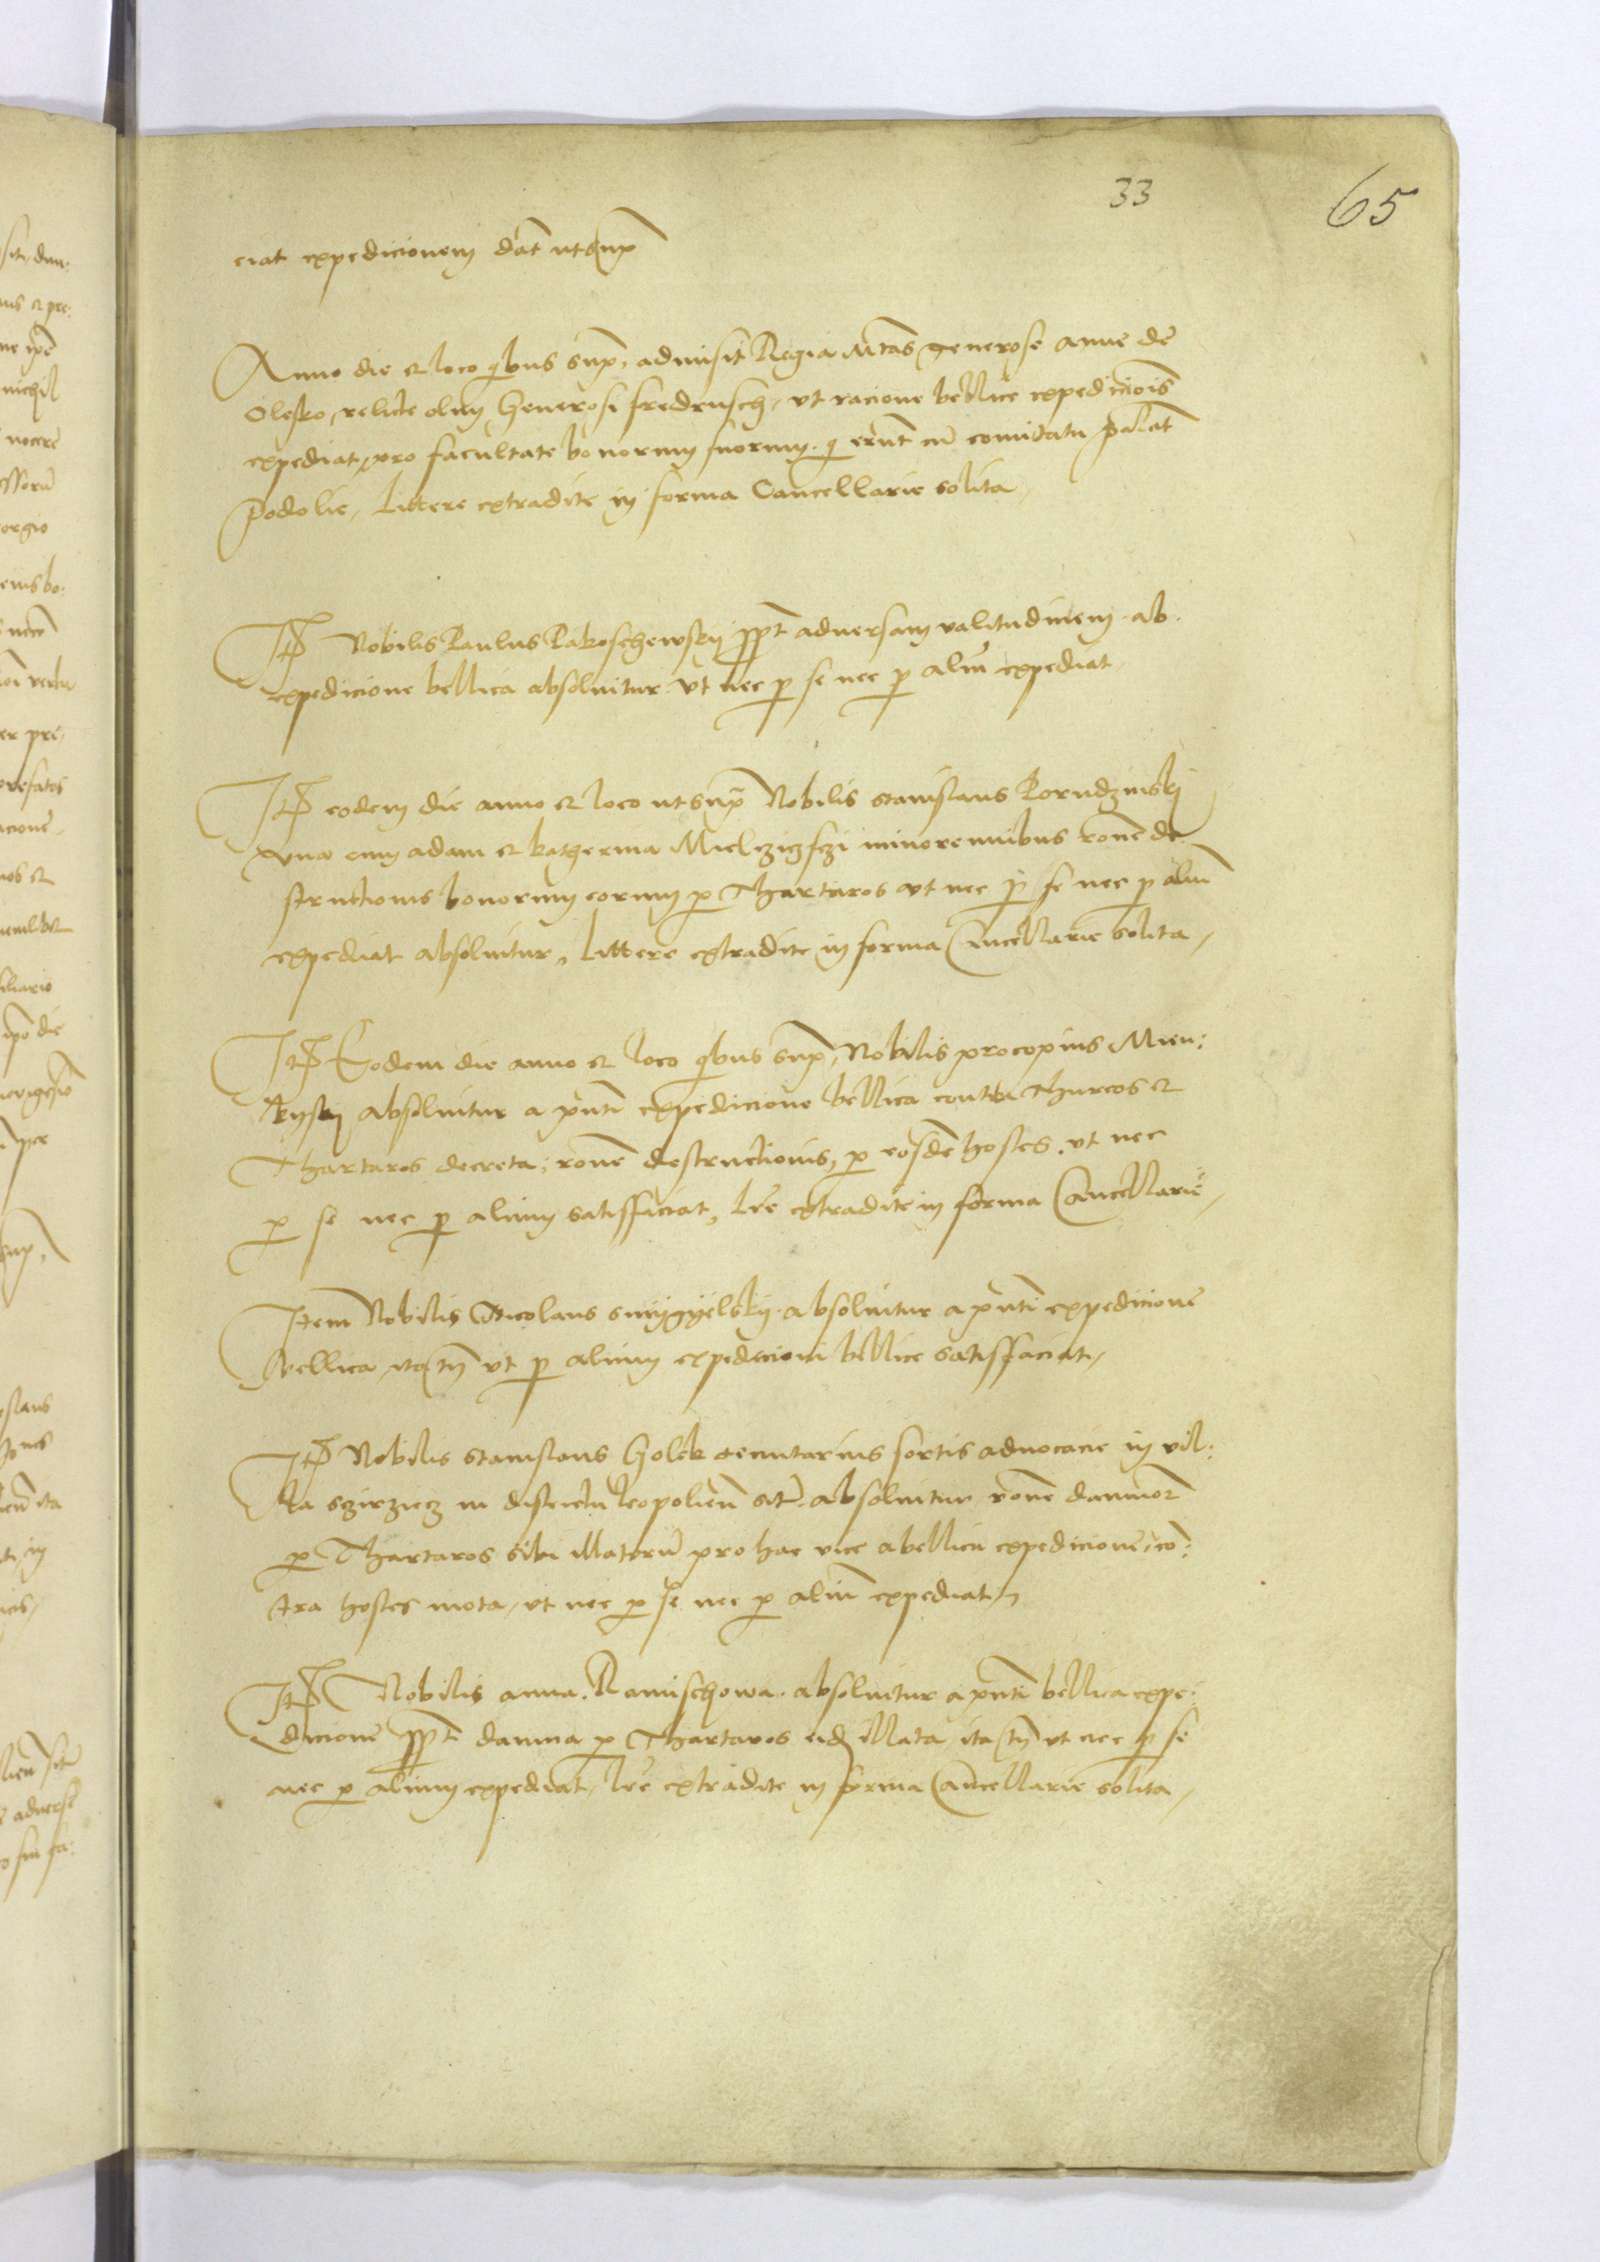 33
65
ciat expedicionem dat utsup
Anno die et loco qbus sup, admisit Regia Mtas generose anne de
Olesko, relicte olim Generosi fredrusch, ut racione bellice expediciois
expediat, pro facultate bonorum suorum. q erunt cu comitatu palat
podolie, Littere extradite in forma Cancellarie solita,
It Nobilis Paulus Rakoschewskij ppt adversam valitudinem ab
expedicione bellica absolvitur ut nec p se nec p aliu expediat
It eodem die anno et loco utsup Nobilis stanislaus
una cum adam et katherina minorennibus rone de
structionis bonorum eorum p Thartaros ut nec p se nec p aliu
expediat absolvitur, Littere extradite in forma Cancellarie solita,
It Eodem die anno et loco qbus sup, Nobilis procopius Mien:
absolvitur a pnti expedicione bellica contra Thurcos et
Thartaros decreta, rone destructionis, p eosde hostes. ut nec
p se nec p alium satisffaciat, lre extradite in forma Cancellarie,
Item Nobilis Nicolaus smygyelskij absolvitur a pnti expedicione
bellica, ita tn ut p alium expedicioni bellice satisffaciat,
It Nobilis stanislaus Golek tenutarius sortis advocacie in vil:
la szirziecz in districtu leopolien sit. absolvitur rone damnor
p Thartaros sibi illatoru pro hac vice a bellica expedicione, co:
tra hostes mota, ut nec p se nec p aliu expediat
It Nobilis anna. Ramschowa. absolvitur a pnti bellica expe:
dicione ppt damna p Thartaros eid illata ita tn ut nec p se
nec p alium expediat, lre extradite in forma Cancellarie solita,